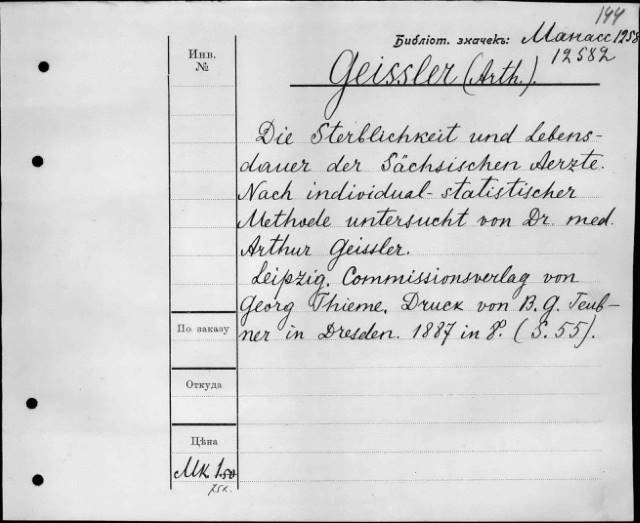 144
Библіот. значекъ: Манасс 1258
12582
Инв.
№
Geissler (Arth.).
Die Sterblichkeit und Lebens-
dauer der Sächsischen Aerzte.
Nach individual-statistischer
Methode untersucht von Dr. med.
Arthur Geissler.
Leipzig. Commissionsverlag von
Georg Thieme. Druck von B. G. Teub-
ner in Dresden. 1887 in 8°. (S. 55).
По заказу
Откуда
Цѣна
Мк 1.50
75к.